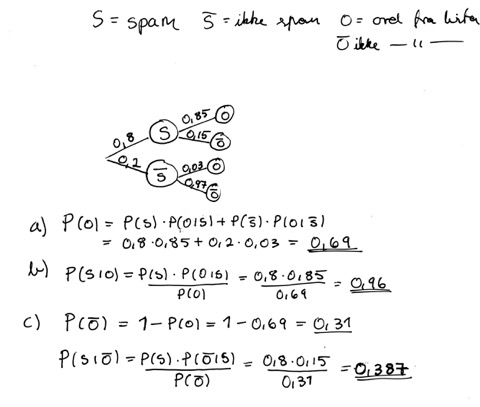 S = spam S̄ = ikke spam O = ord fra lista
Ō ikke — " —
0,8 S 0,85 O
0,15 Ō
0,2 S̄ 0,03 O
0,97 Ō
a) P(O) = P(S) · P(O|S) + P(S̄) · P(O|S̄)
= 0,8 · 0,85 + 0,2 · 0,03 = 0,69
b) P(S|O) = P(S) · P(O|S) / P(O) = 0,8 · 0,85 / 0,69 = 0,96
c) P(Ō) = 1 - P(O) = 1 - 0,69 = 0,31
P(S|Ō) = P(S) · P(Ō|S) / P(Ō) = 0,8 · 0,15 / 0,31 = 0,387